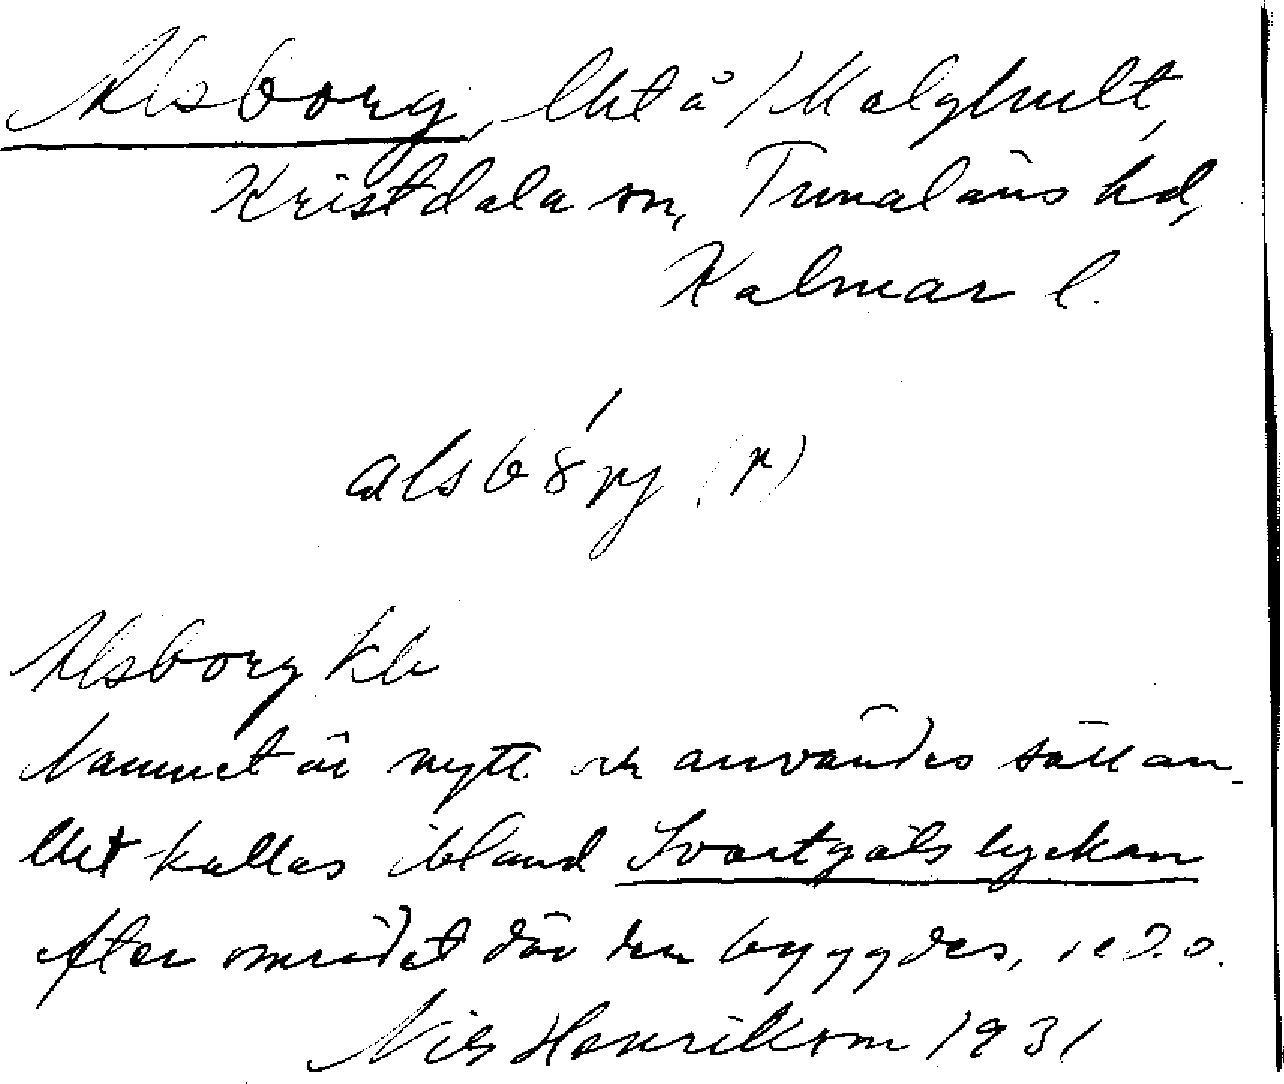 Alsborg, lht å /Malghult,
Kristdala sn, Tunaläns hd,
Kalmar l.
alsbórj (r)
Alsborg kb
Namnet är nytt och användes sällan.
Lht kallas ibland Svartgöls lyckan
efter området där den byggdes, se d.o.
Nils Henrikson 1931